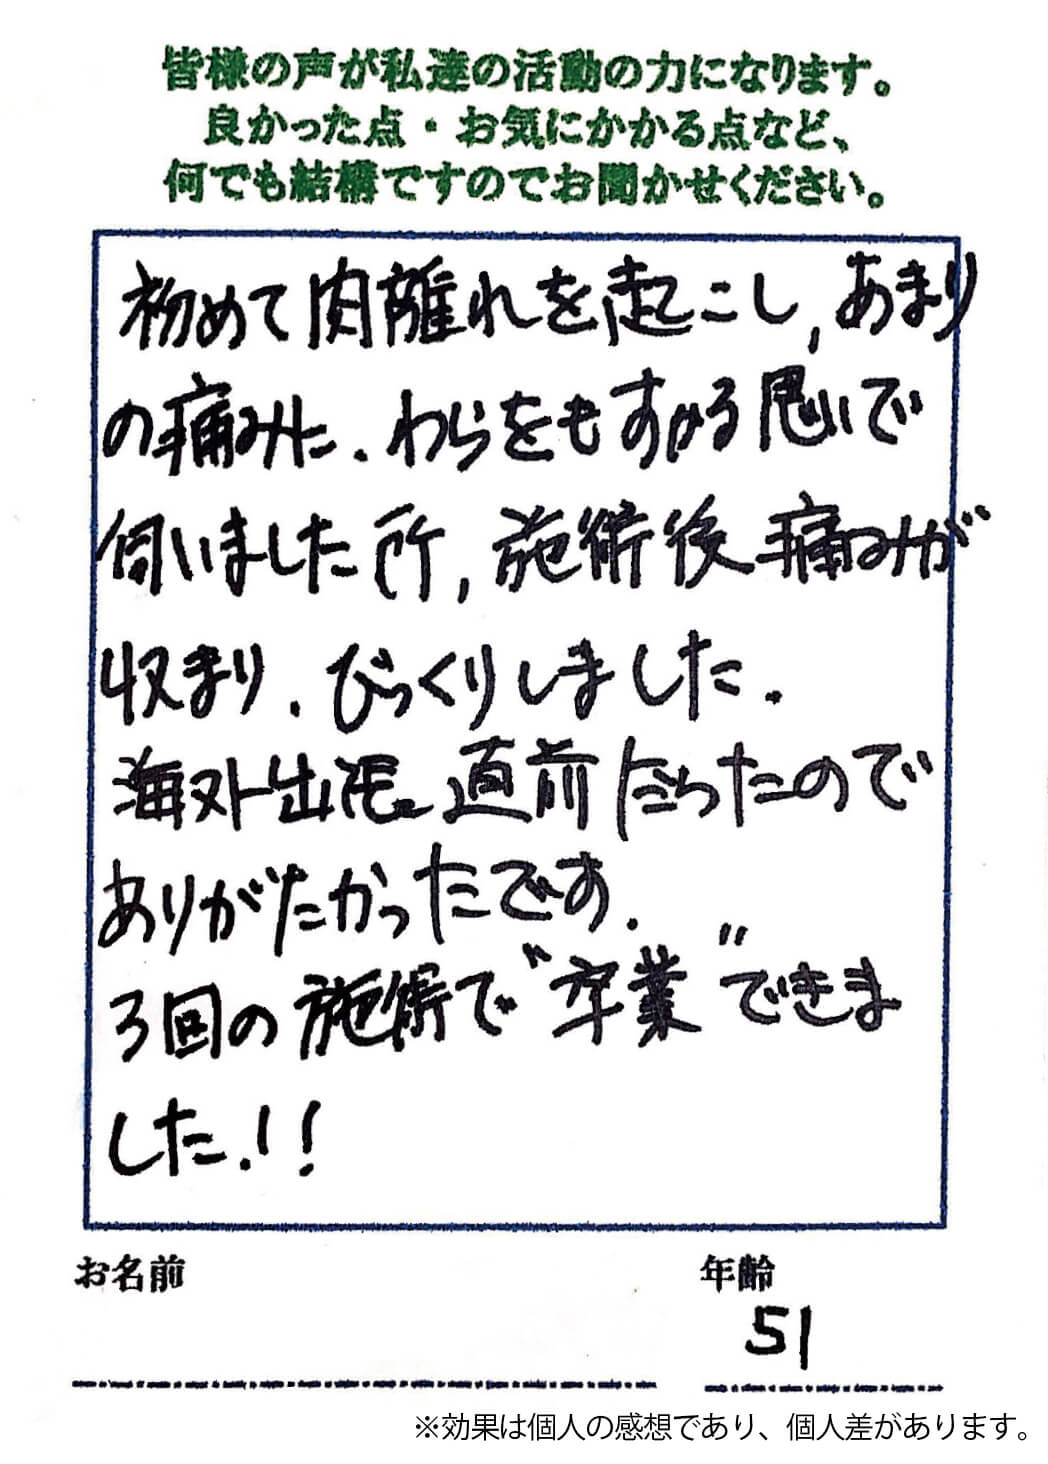 皆様の声が私達の活動の力になります。
良かった点・お気にかかる点など、
何でも結構ですのでお聞かせください。
初めて肉離れを起こし,あまり
の痛みに.わらをもすがる思いで
伺いました所,施術後痛みが
収まり.びっくりしました.
海外出張直前だったので
ありがたかったです.
3回の施術で"卒業"できま
した.!!
お名前
年齢
51
※効果は個人の感想であり、個人差があります。